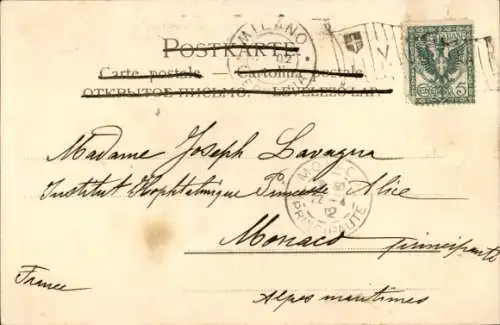 MILANO
02
POSTKARTE.
Carte postale — Cartolina postale
ОТКРЫТОЕ ПИСЬМО. — LEVELEZŐ-LAP.
Madame Joseph Lavagna
Institut Hophtalmique Princesse Alice
MONACO
22-4
12
PRINCIPAUTÉ
Monaco principauté
France
Alpes maritimes